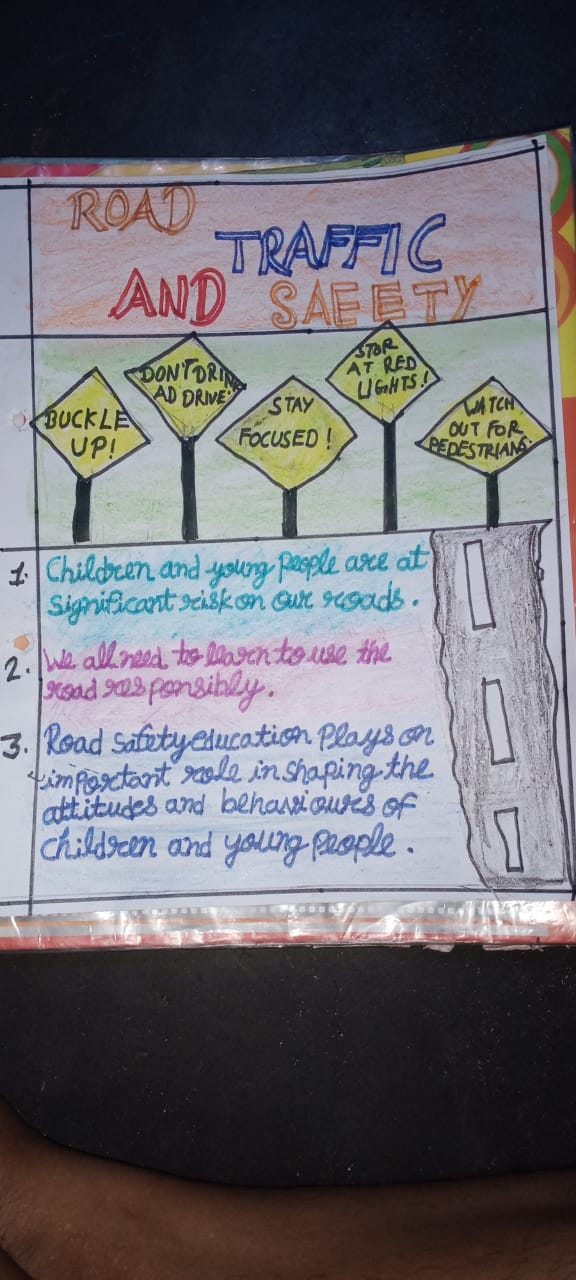 ROAD
TRAFFIC
AND SAFETY
BUCKLE
UP!
DON'T DRINK
AD DRIVE.
STAY
FOCUSED!
STOR
AT RED
LIGHTS!
WATCH
OUT FOR
PEDESTRIANS.
1. Children and young people are at
significant risk on our roads.
2. We all need to learn to use the
road responsibly.
3. Road safety education plays on
important role in shaping the
attitudes and behaviours of
children and young people.